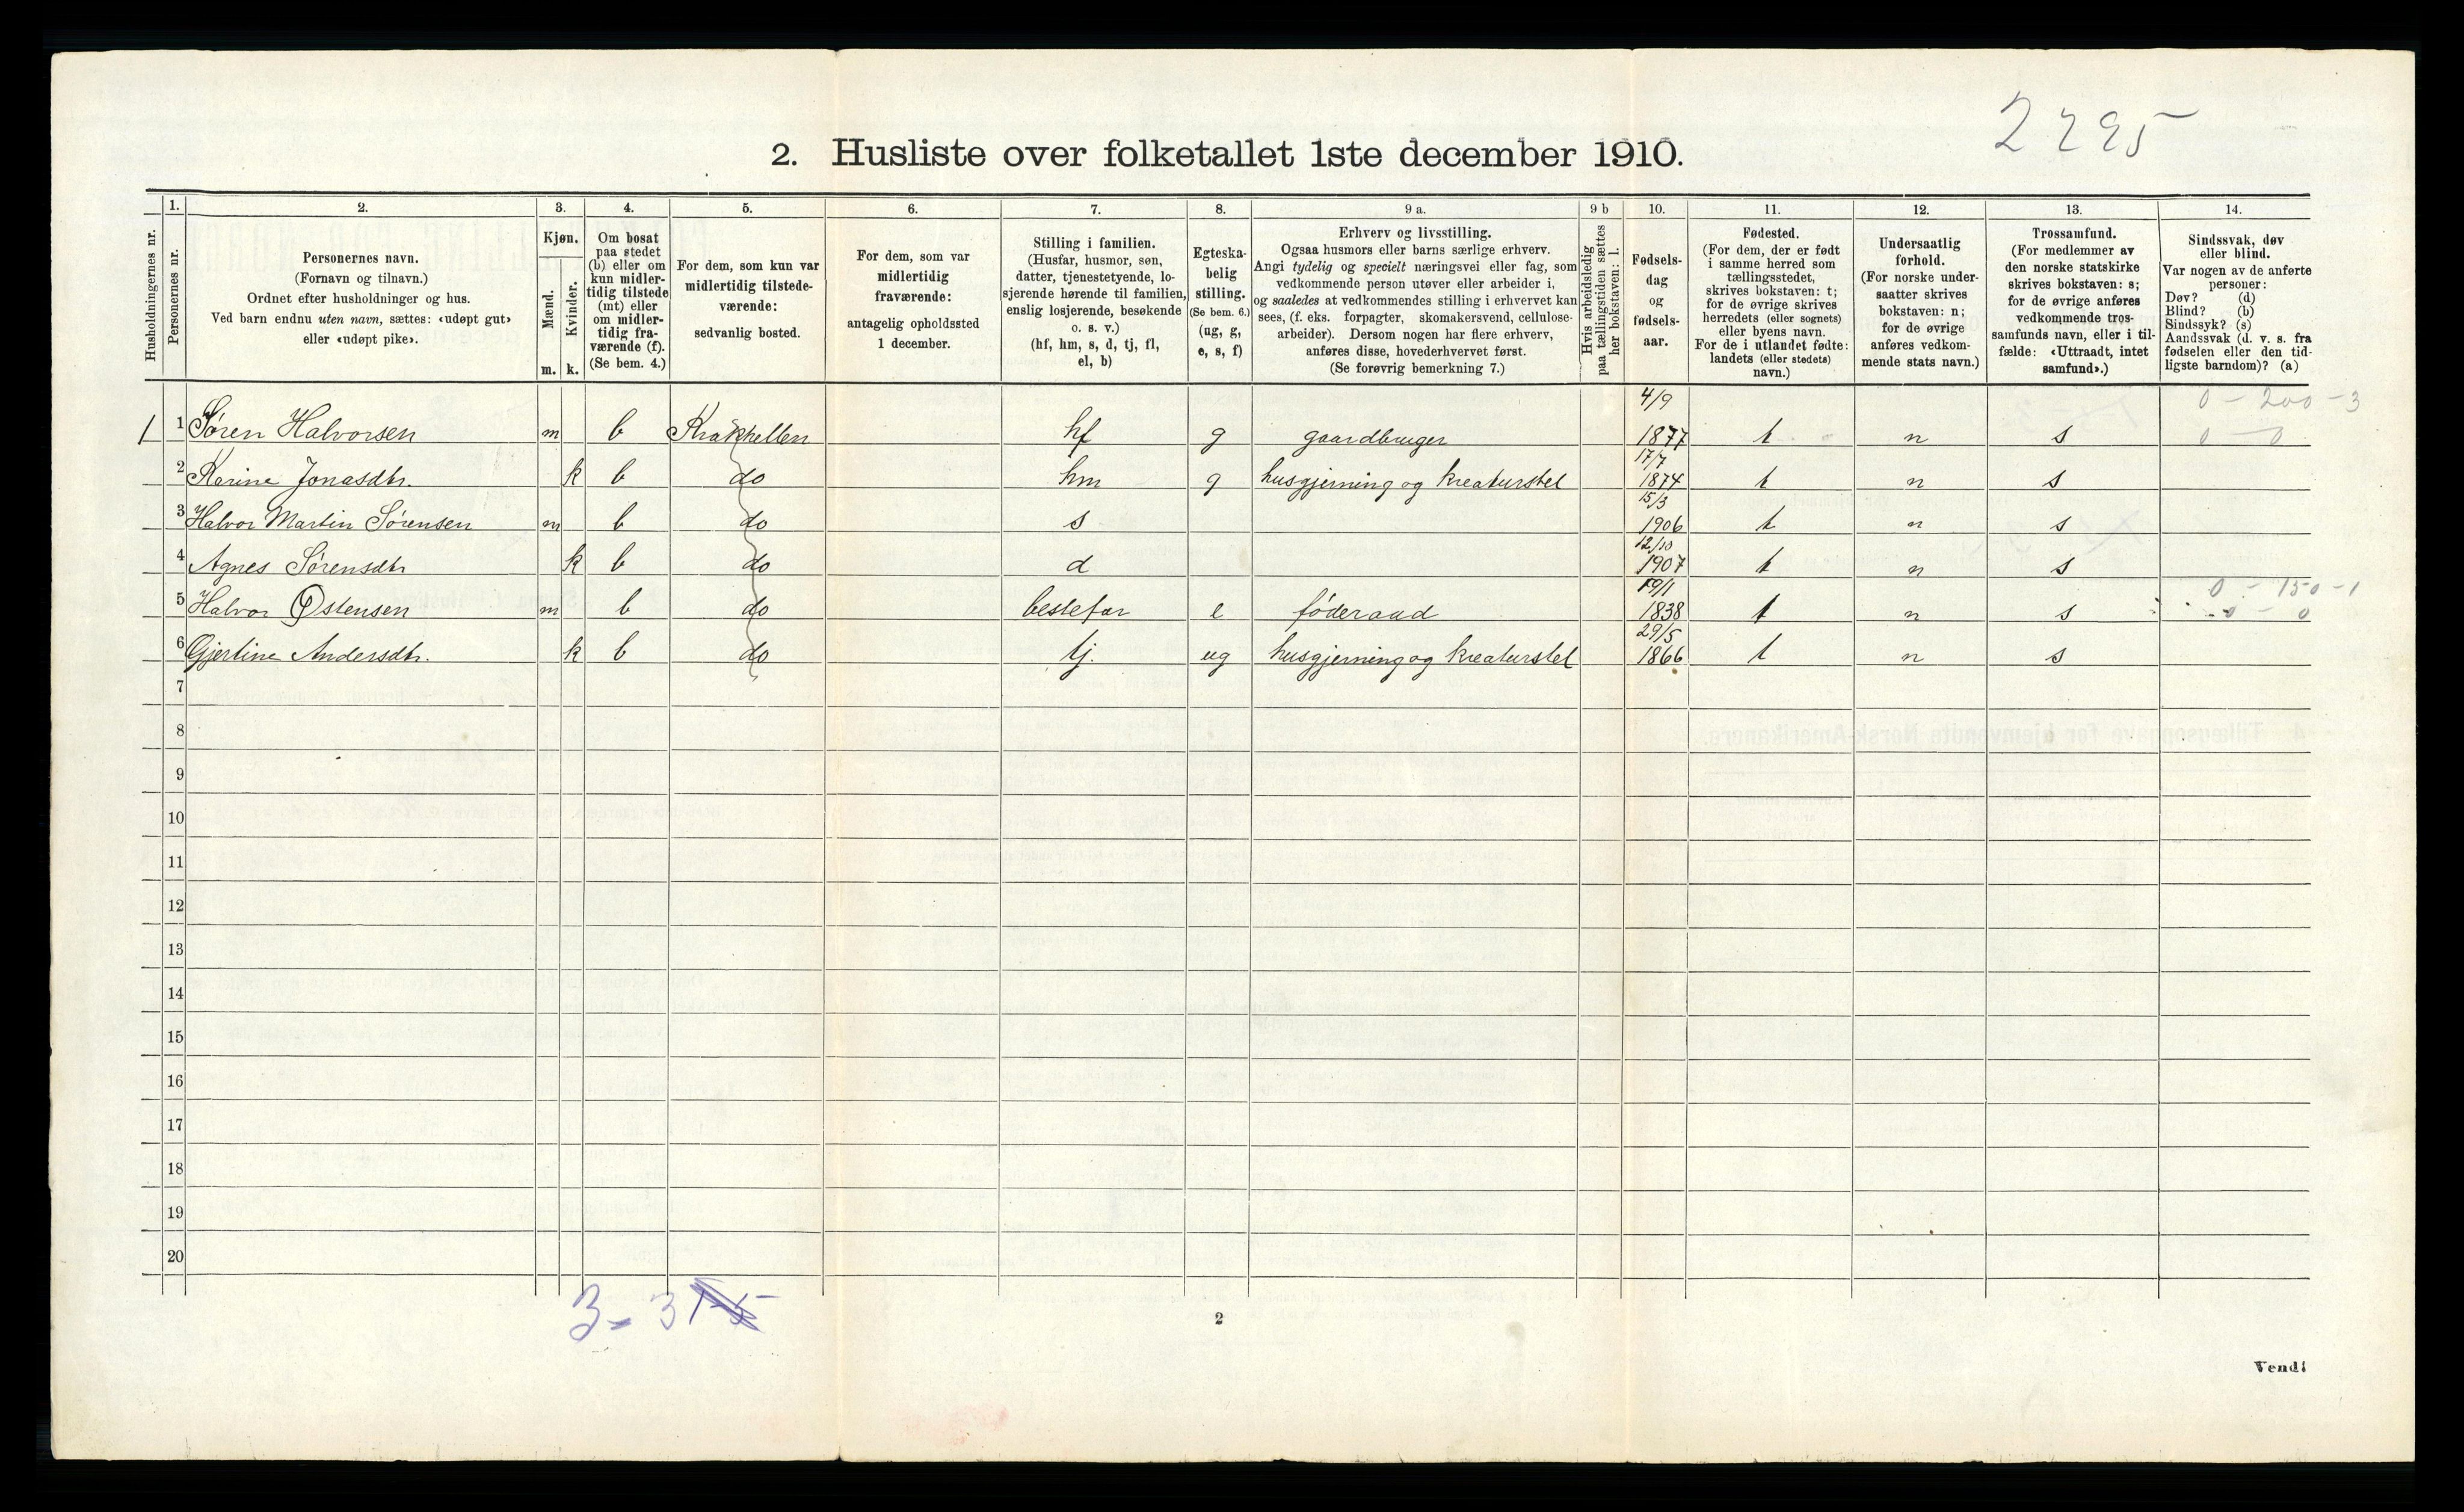 2295
2. Husliste over folketallet 1ste december 1910.
Husholdningernes nr.
1. Personernes nr.
2. Personernes navn. (Fornavn og tilnavn.) Ordnet efter husholdninger og hus. Ved barn endnu uten navn, sættes: «udøpt gut» eller «udøpt pike».
3. Kjøn. Mænd. m. Kvinder. k.
4. Om bosat paa stedet (b) eller om kun midler-tidig tilstede (mt) eller om midler-tidig fra-værende (f). (Se bem. 4.)
5. For dem, som kun var midlertidig tilstede-værende: sedvanlig bosted.
6. For dem, som var midlertidig fraværende: antagelig opholdssted 1 december.
7. Stilling i familien. (Husfar, husmor, søn, datter, tjenestetyende, lo-sjerende hørende til familien, enslig losjerende, besøkende o. s. v.) (hf, hm, s, d, tj, fl, el, b)
8. Egteska-belig stilling. (Se bem. 6.) (ug, g, e, s, f)
9 a. Erhverv og livsstilling. Ogsaa husmors eller barns særlige erhverv. Angi tydelig og specielt næringsvei eller fag, som vedkommende person utøver eller arbeider i, og saaledes at vedkommendes stilling i erhvervet kan sees, (f. eks. forpagter, skomakersvend, cellulose-arbeider). Dersom nogen har flere erhverv, anføres disse, hovederhvervet først. (Se forøvrig bemerkning 7.)
9 b Hvis arbeidsledig paa tællingstiden sættes her bokstaven: l.
10. Fødsels-dag og fødsels-aar.
11. Fødested. (For dem, der er født i samme herred som tællingsstedet, skrives bokstaven: t; for de øvrige skrives herredets (eller sognets) eller byens navn. For de i utlandet fødte: landets (eller stedets) navn.)
12. Undersaatlig forhold. (For norske under-saatter skrives bokstaven: n; for de øvrige anføres vedkom-mende stats navn.)
13. Trossamfund. (For medlemmer av den norske statskirke skrives bokstaven: s; for de øvrige anføres vedkommende tros-samfunds navn, eller i til-fælde: «Uttraadt, intet samfund».)
14. Sindssvak, døv eller blind. Var nogen av de anførte personer: Døv? (d) Blind? (b) Sindssyk? (s) Aandssvak (d. v. s. fra fødselen eller den tid-ligste barndom)? (a)
1 1 Søren Halvorsen m b Krakhellen hf g gaardbruger 4/9 1877 t n s 0 - 200 - 3 0 - 0
2 Karine Jonasdtr. k b do hm g husgjerning og kreaturstel 17/7 1874 t n s
3 Halvor Martin Sørensen m b do s 15/3 1906 t n s
4 Agnes Sørensdtr k b do d 12/10 1907 t n s
5 Halvor Østensen m b do bestefar e føderaad 19/1 1838 t n s 0 - 150 - 1 0 - 0
6 Gjertine Andersdtr. k b do tj. ug husgjerning og kreaturstel 29/5 1866 t n s
7
8
9
10
11
12
13
14
15
16
17
18
19
20
3 - 3
2
Vend!